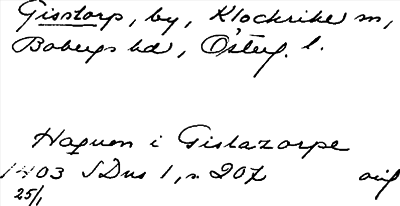 Gisstorp, by, Klockrike sn,
Bobergs hd, Österg. l.
Haquon i Gislazorpe
1403 SDns 1, s 207 orig
25/1